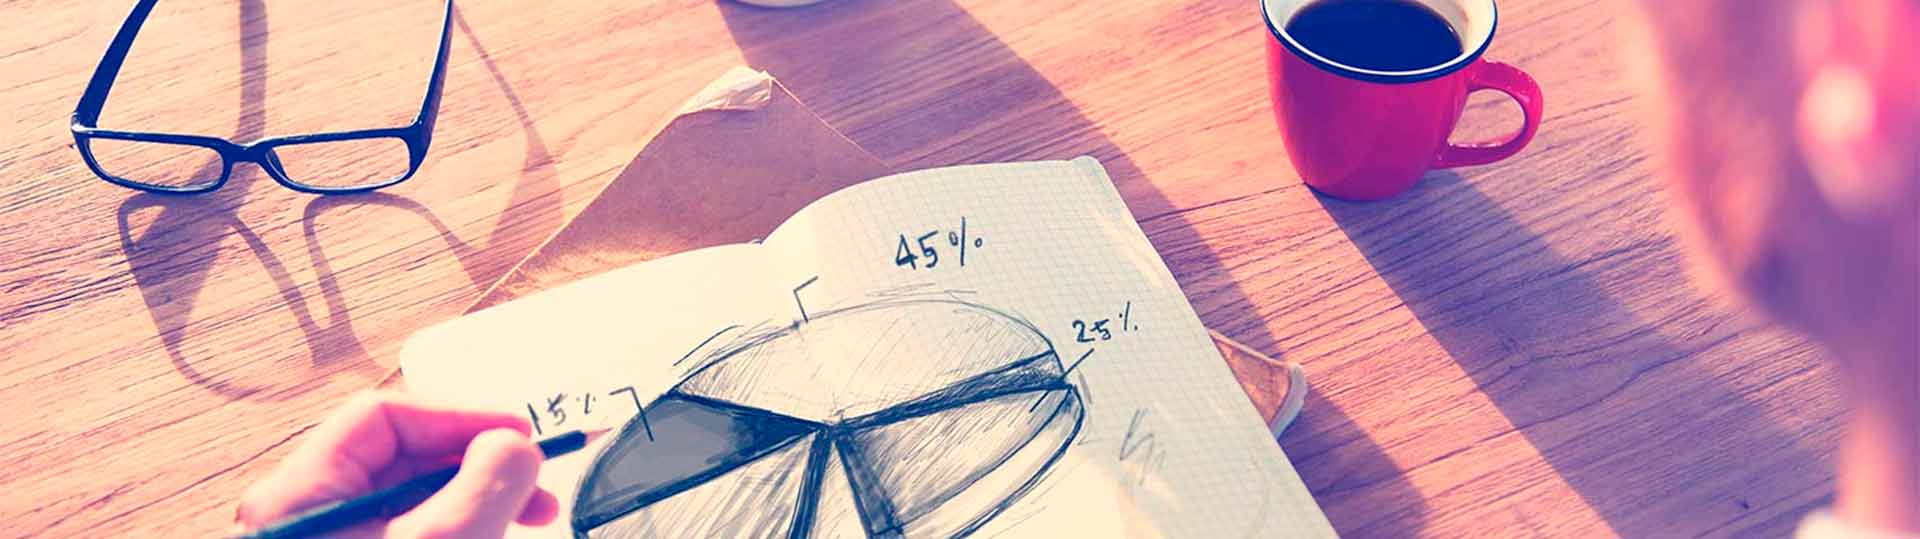 45%
25%
15%